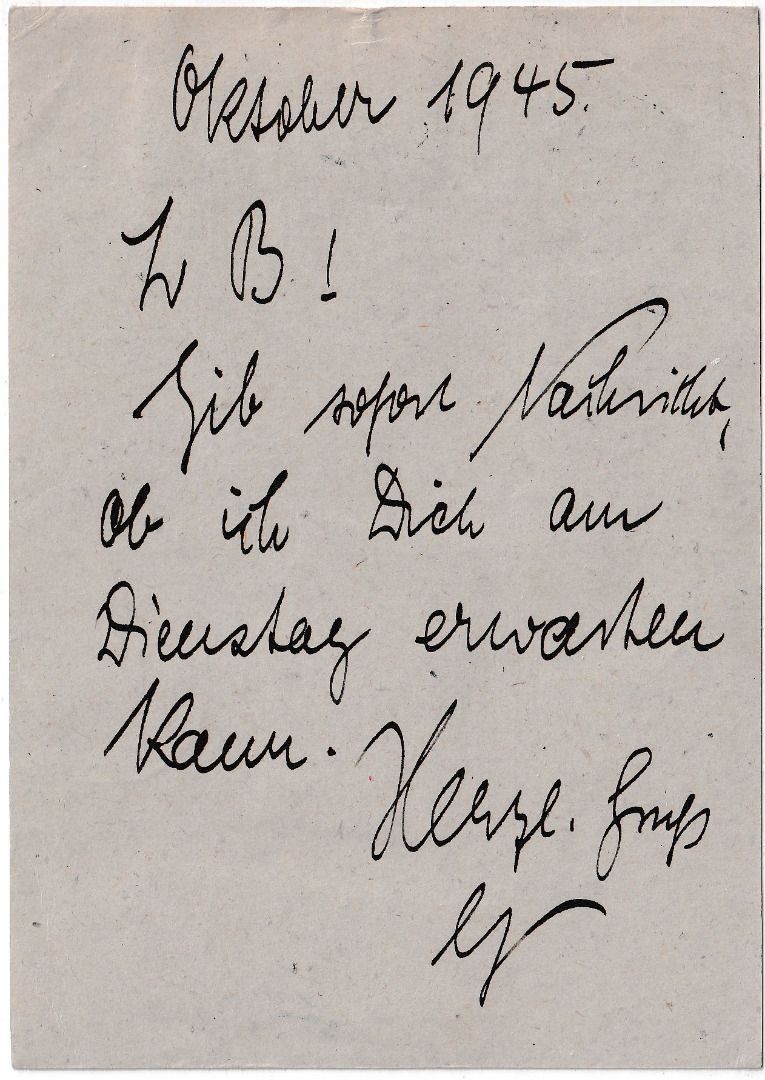 Oktober 1945.
L B!
Gib sofort Nachricht,
ob ich Dich am
Dienstag erwarten
kann.
Herzl. Gruß